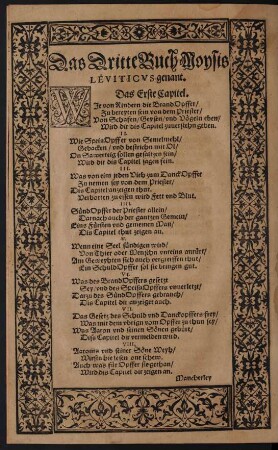 Das Dritte Buch Moysis
LEVITICVS genant.
Das Erste Capitel.
WIe von Rindern die Brand Opffer/
Zu bereyten sein von dem Priester/
Von Schafen/ Geysen/ und Vögeln eben/
Wird dir diß Capitel zuverstehn geben.
II.
Wie Speis Opffer von Semelmehl/
Gebacken/ und bestrichn mit Öl/
Un Sawerteig sollen gesaltzen sein/
Wird dir diß Capitel sagen fein.
III.
Was von eim jeden Vieh zum Danck Opffer
Zu nemen sey von dem Priester/
Diß Capitel anzeigen thut.
Verbotten zu essen wird Fett und Blut.
IIII.
Sünd Opffer der Priester allein/
Darnach auch der gantzen Gemein/
Eins Fürsten und gemeinen Man/
Diß Capitel thut zeigen an.
V.
Wenn eine Seel sündigen wird/
Von Thier oder Menschn unrein
Am Geweyhten sich auch vergreiffen thut/
Ein Schuld Opffer sol sie bringen gut.
VI.
Was des Brand Opffers gesetz
Sey/ und des Speis Opffers unverletzt/
Darzu des Sünd Opffers gebrauch/
Diß Capitel dir anzeiget auch.
VII.
Das Gesetz des Schuld und Danckopffers sey/
Was mit dem ubrign vom Opffer zu thun sey/
Was Aaron und seinen Sönen gebürt/
Diß Capitel du vermelden wird.
VIII.
Aarons und seiner Söne Weyh/
Wirstu hie lesen one schew.
Auch was für Opffer sie gethan/
Wird diß Capitel dir zeigen an.
Mancherley